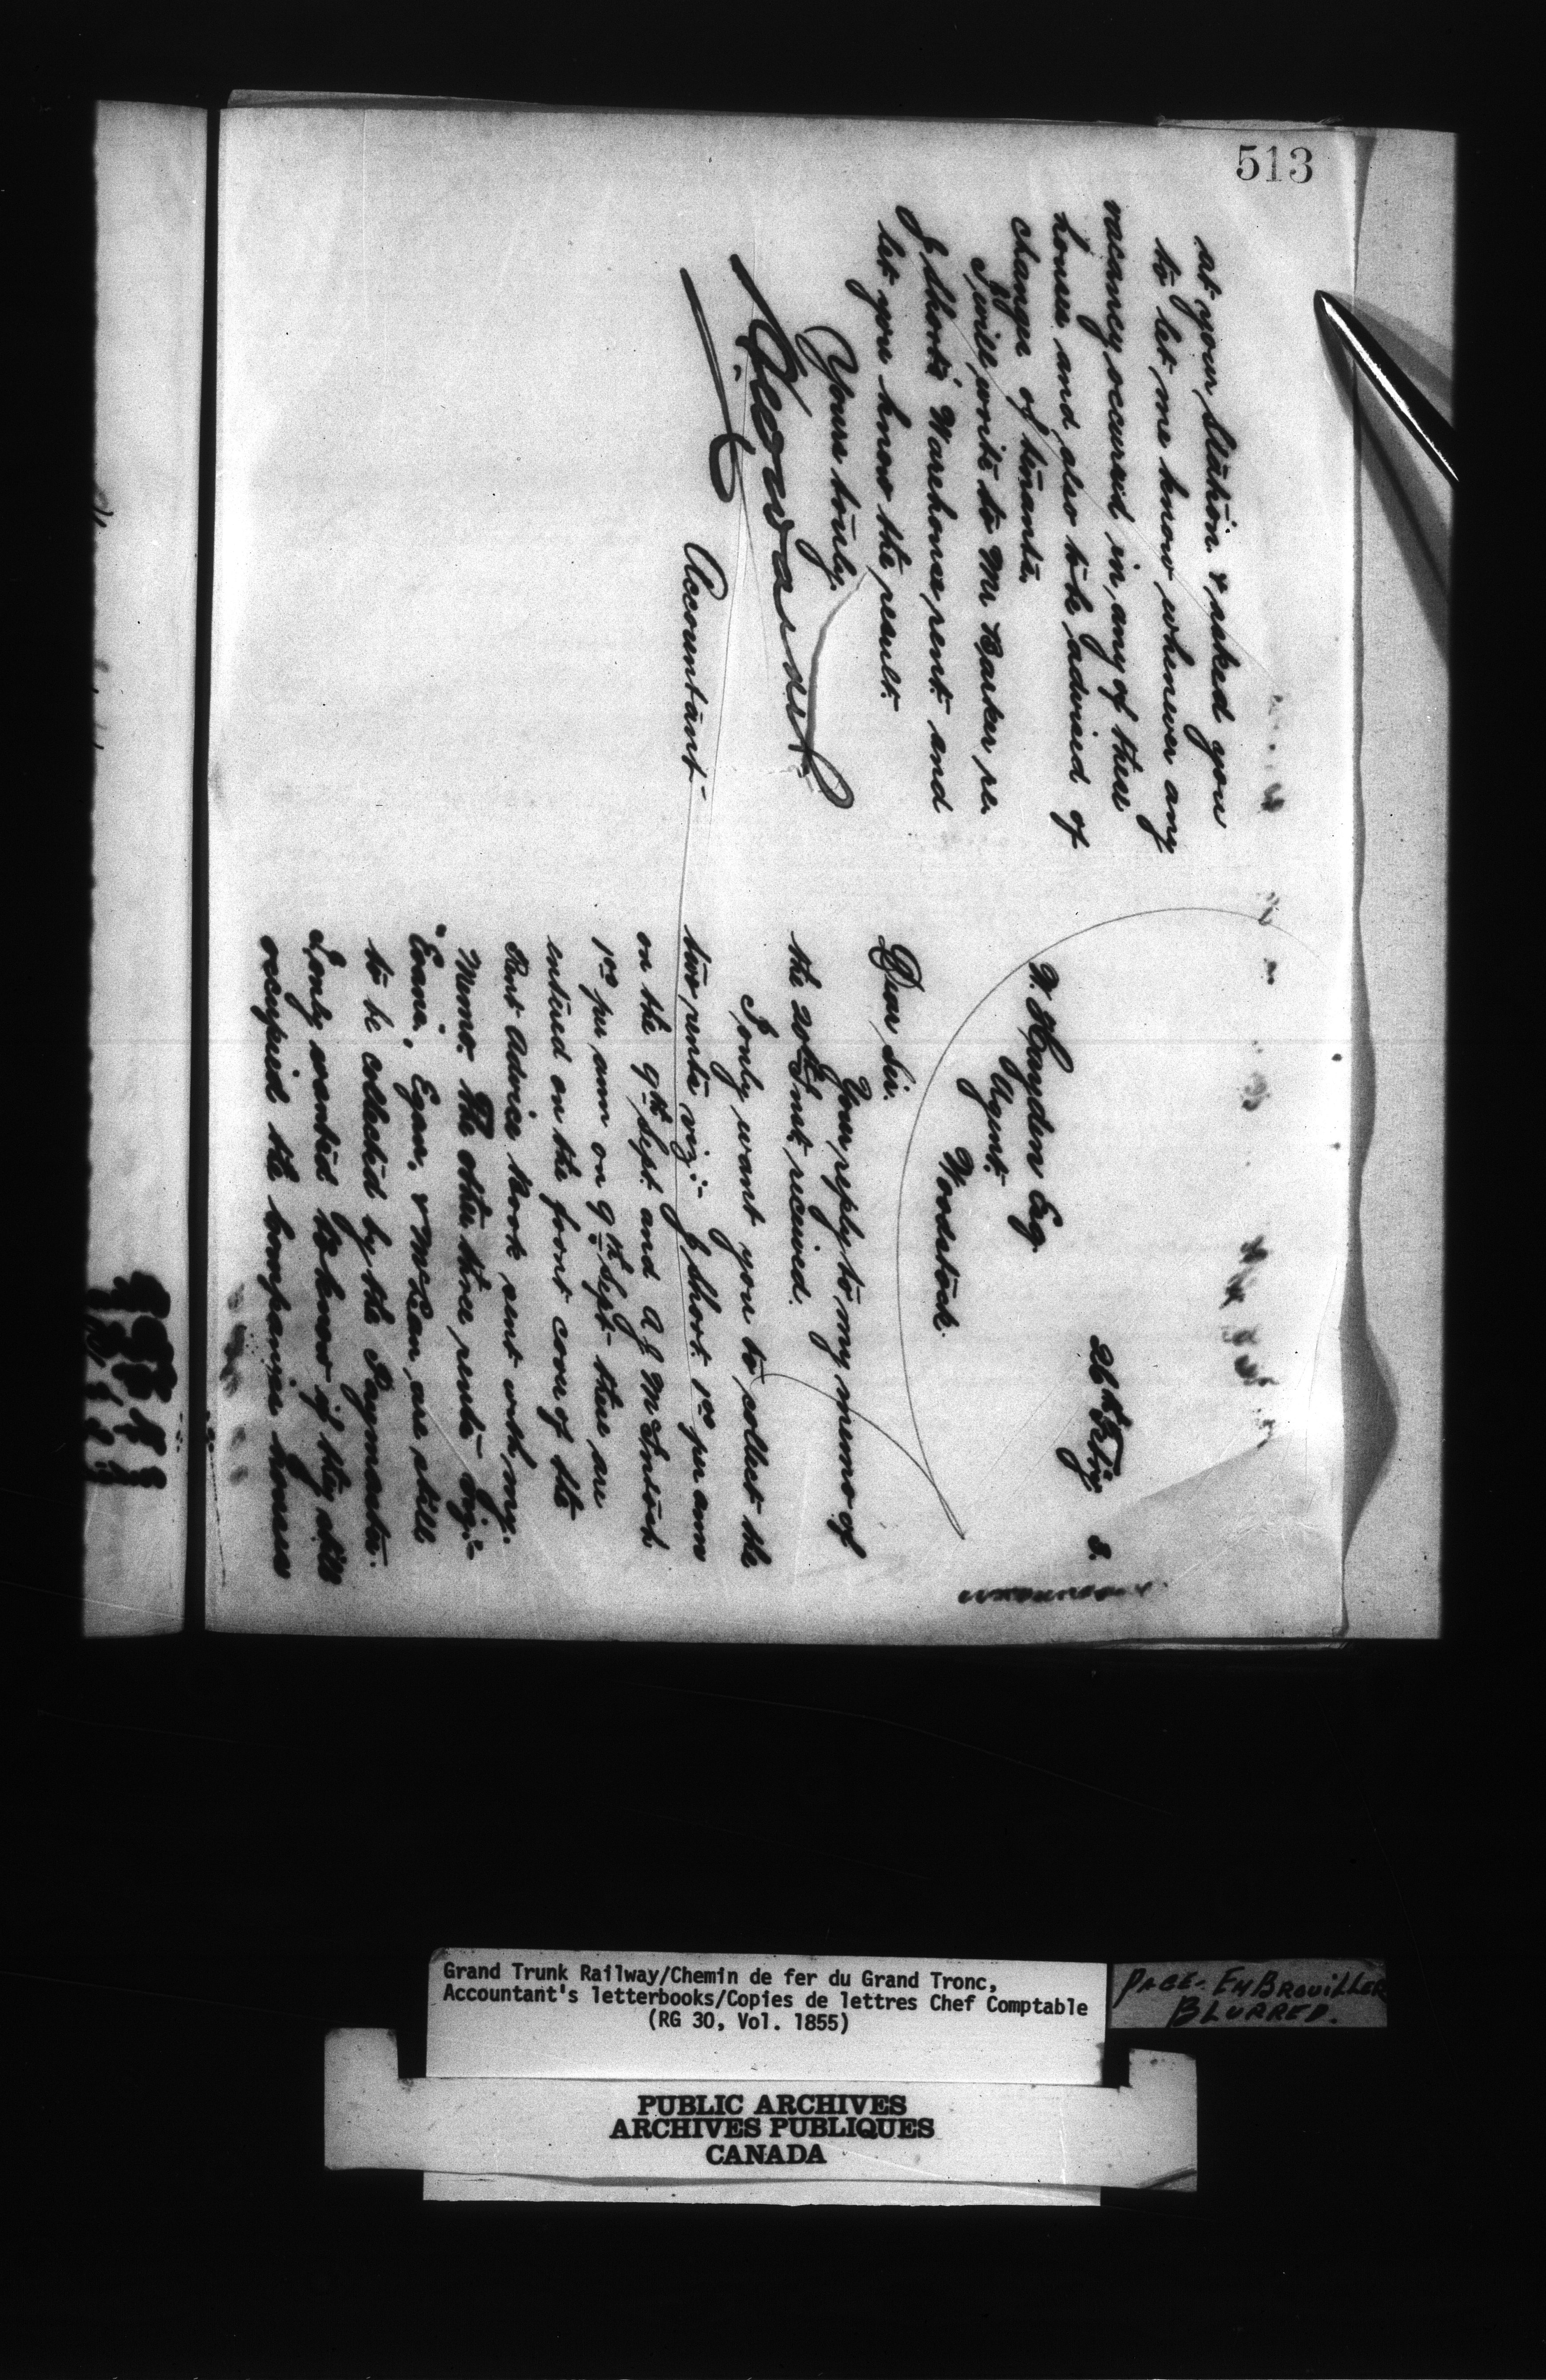 513
26th Feby 8.
W. Hayden Esq.
Agent.
Woodstock.
Dear Sir.
Your reply to my memo of
the 20th Inst. received.
I only want you to collect the
two rents viz:- J. Short. 1 00 per ann
on the 9th Sept. and A J. McIntosh
1 00 per ann on 9th Sept. these are
entered on the front cover of the
Rent Advice Book sent with my
Memo. The other three rents - viz:-
"Evans", Egan, & McLean, are still
to be collected by the Paymaster.
I only wanted to know if they still
occupied the Companys houses
at your Station & asked you
to let me know whenever any
vacancy occurred in any of these
houses and also to be advised of
changes of tenants.
I will write to Mr Barker re.
J. Short's Warehouse rent. and
let you know the result.
Yours truly.
Accountant
Grand Trunk Railway/Chemin de fer du Grand Tronc,
Accountant's letterbooks/Copies de lettres Chef Comptable
(RG 30, Vol. 1855)
PAGE. EMBROUILLER
BLURRED.
PUBLIC ARCHIVES
ARCHIVES PUBLIQUES
CANADA